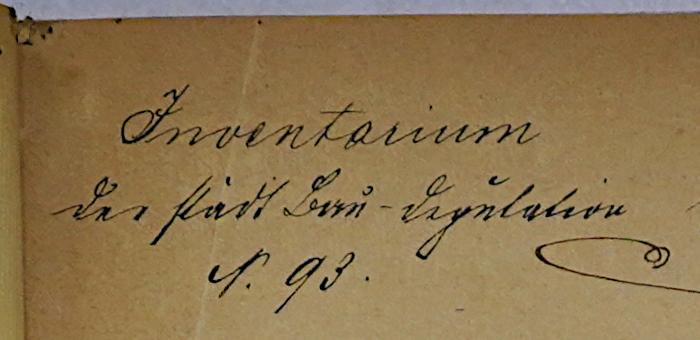 Inventarium
der städt Bau-Deputation
N. 93.